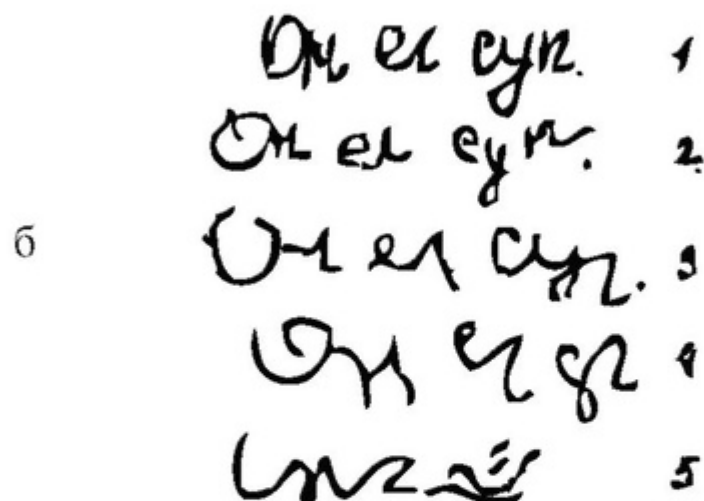 Он ел суп. 1
Он ел суп. 2
б
Он ел суп. 3
Он ел суп 4
5